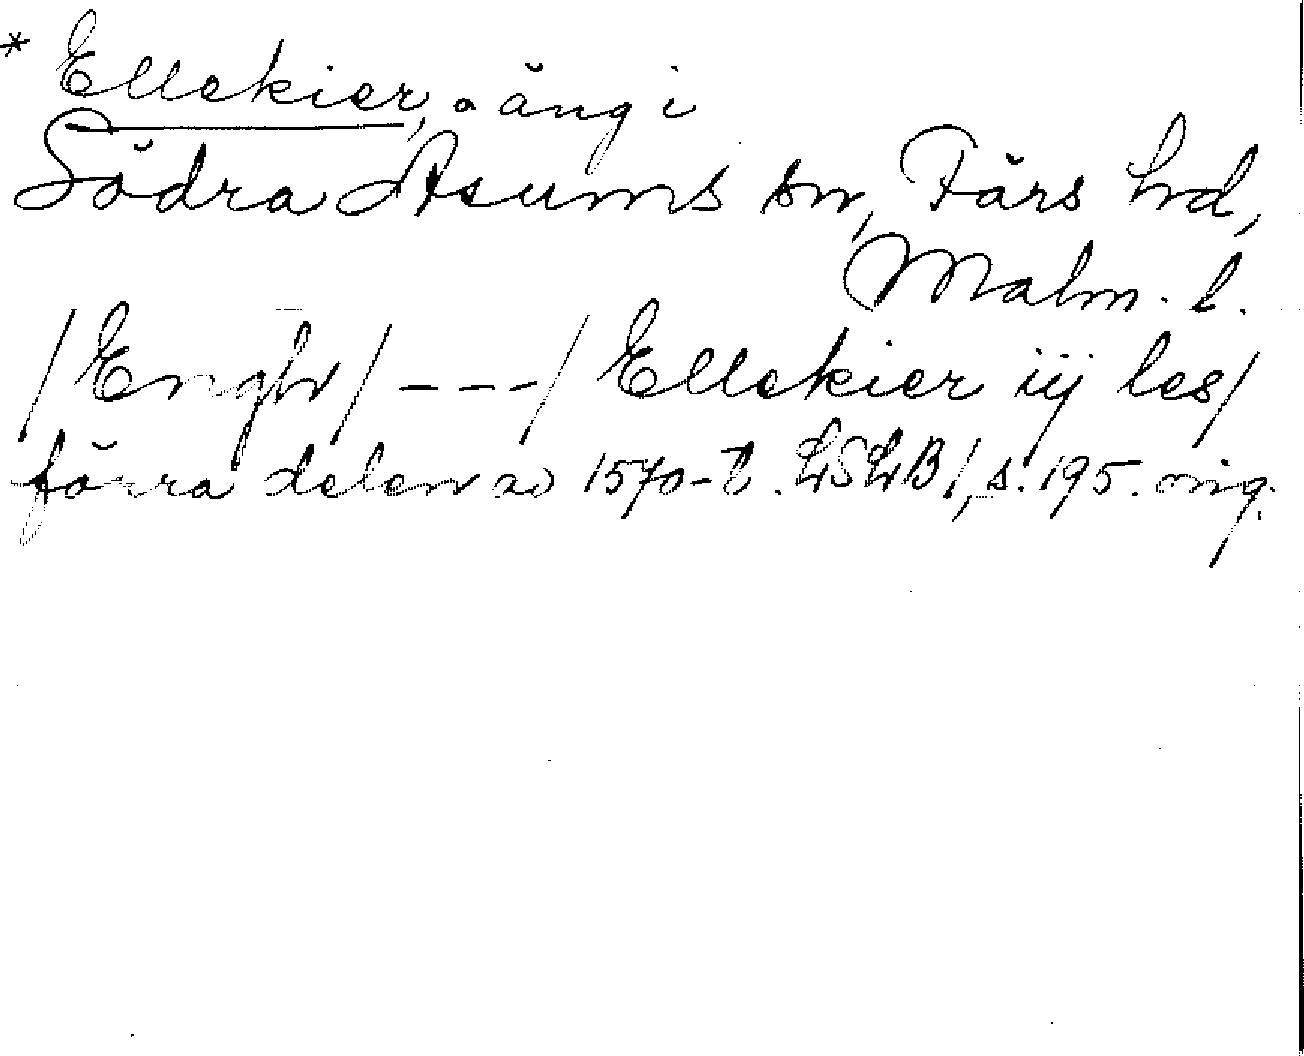 * Ellekier, äng i
Södra Åsums sn, Färs hd,
Malm. l.
/Engh/ --- / Ellekier iij les/
förra delen av 1570-t. LSLB 1, s. 195. orig.